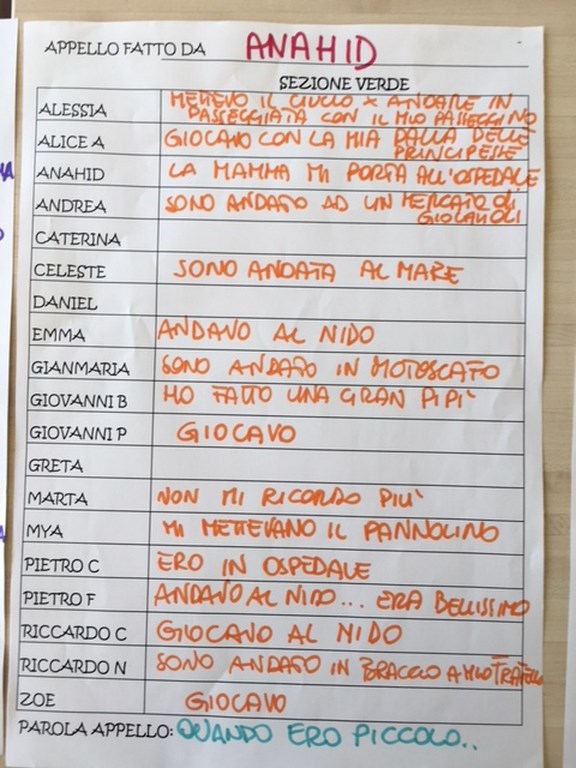 APPELLO FATTO DA ANAHID
SEZIONE VERDE
ALESSIA METTEVO IL CIUCIO X ANDARE IN
PASSEGGIATA CON IL MIO PASSEGGINO
ALICE A GIOCAVO CON LA MIA PALLA DELLE
PRINCIPESSE
ANAHID LA MAMMA MI PORTA ALL'OSPEDALE
ANDREA SONO ANDATO AD UN MERCATO DI
GIOCATTOLI
CATERINA
CELESTE SONO ANDATA AL MARE
DANIEL
EMMA ANDAVO AL NIDO
GIANMARIA SONO ANDATO IN MOTOSCAFO
GIOVANNI B HO FATTO UNA GRAN PIPI'
GIOVANNI P GIOCAVO
GRETA
MARTA NON MI RICORDO PIU'
MYA MI METTEVANO IL PANNOLINO
PIETRO C ERO IN OSPEDALE
PIETRO F ANDAVO AL NIDO... ERA BELLISSIMO
RICCARDO C GIOCAVO AL NIDO
RICCARDO N SONO ANDATO IN BRACCIO A MIO FRATELLO
ZOE GIOCAVO
PAROLA APPELLO: QUANDO ERO PICCOLO..